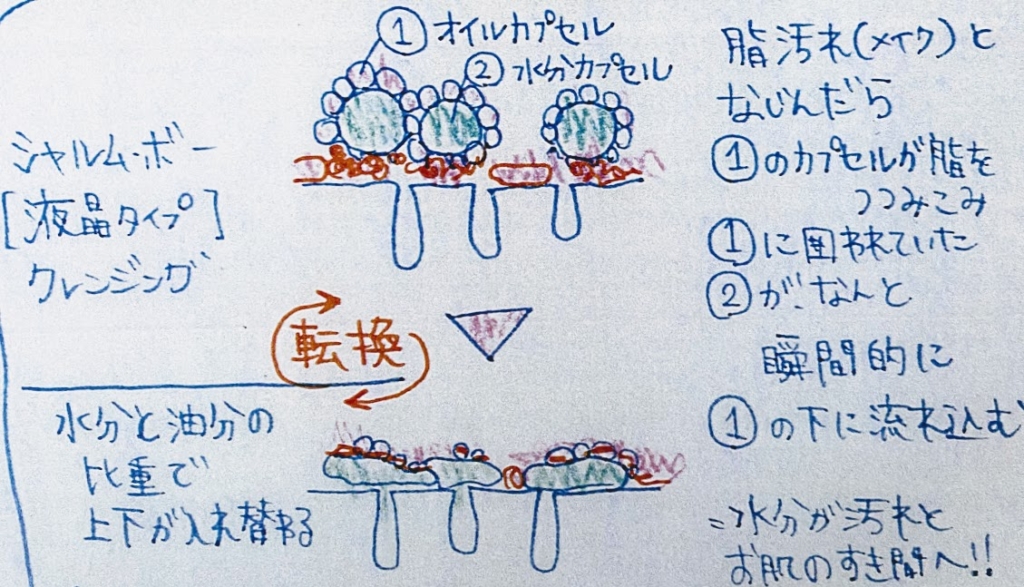 ① オイルカプセル
② 水分カプセル
シャルム・ボー
[液晶タイプ]
クレンジング
転換
水分と油分の
比重で
上下が入れ替わる
脂汚れ(メイク)と
なじんだら
①のカプセルが脂を
つつみこみ
①に囲われていた
②が、なんと
瞬間的に
①の下に流れ込む
=水分が汚れと
お肌のすき間へ!!